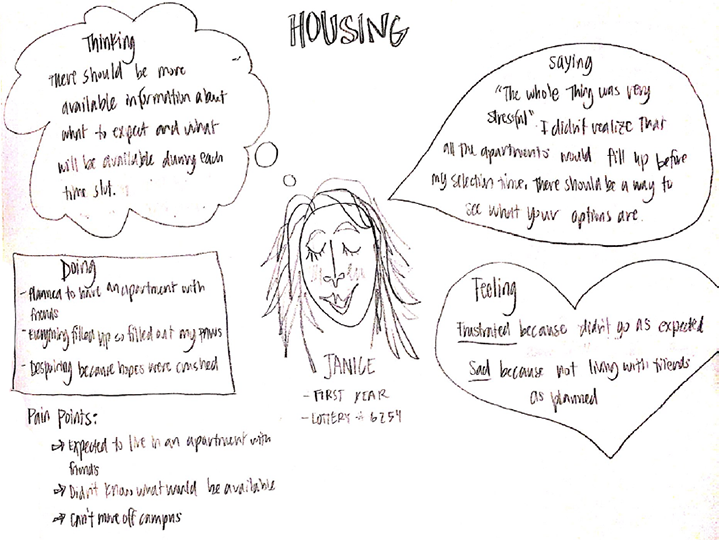 HOUSING
Thinking
There should be more
available information about
what to expect and what
will be available during each
time slot.
Saying
"The whole thing was very
stressful" I didn't realize that
all the apartments would fill up before
my selection time. There should be a way to
see what your options are.
Doing
- Planned to have an apartment with
friends
- Everything filled up so filled out my
- Despairing because hopes were crushed
Feeling
Frustrated because didn't go as expected
Sad because not living with friends
as planned
JANICE
- FIRST YEAR
- LOTTERY # 6254
Pain Points:
⇒ Expected to live in an apartment with
friends
⇒ Didn't know what would be available
⇒ Can't move off campus